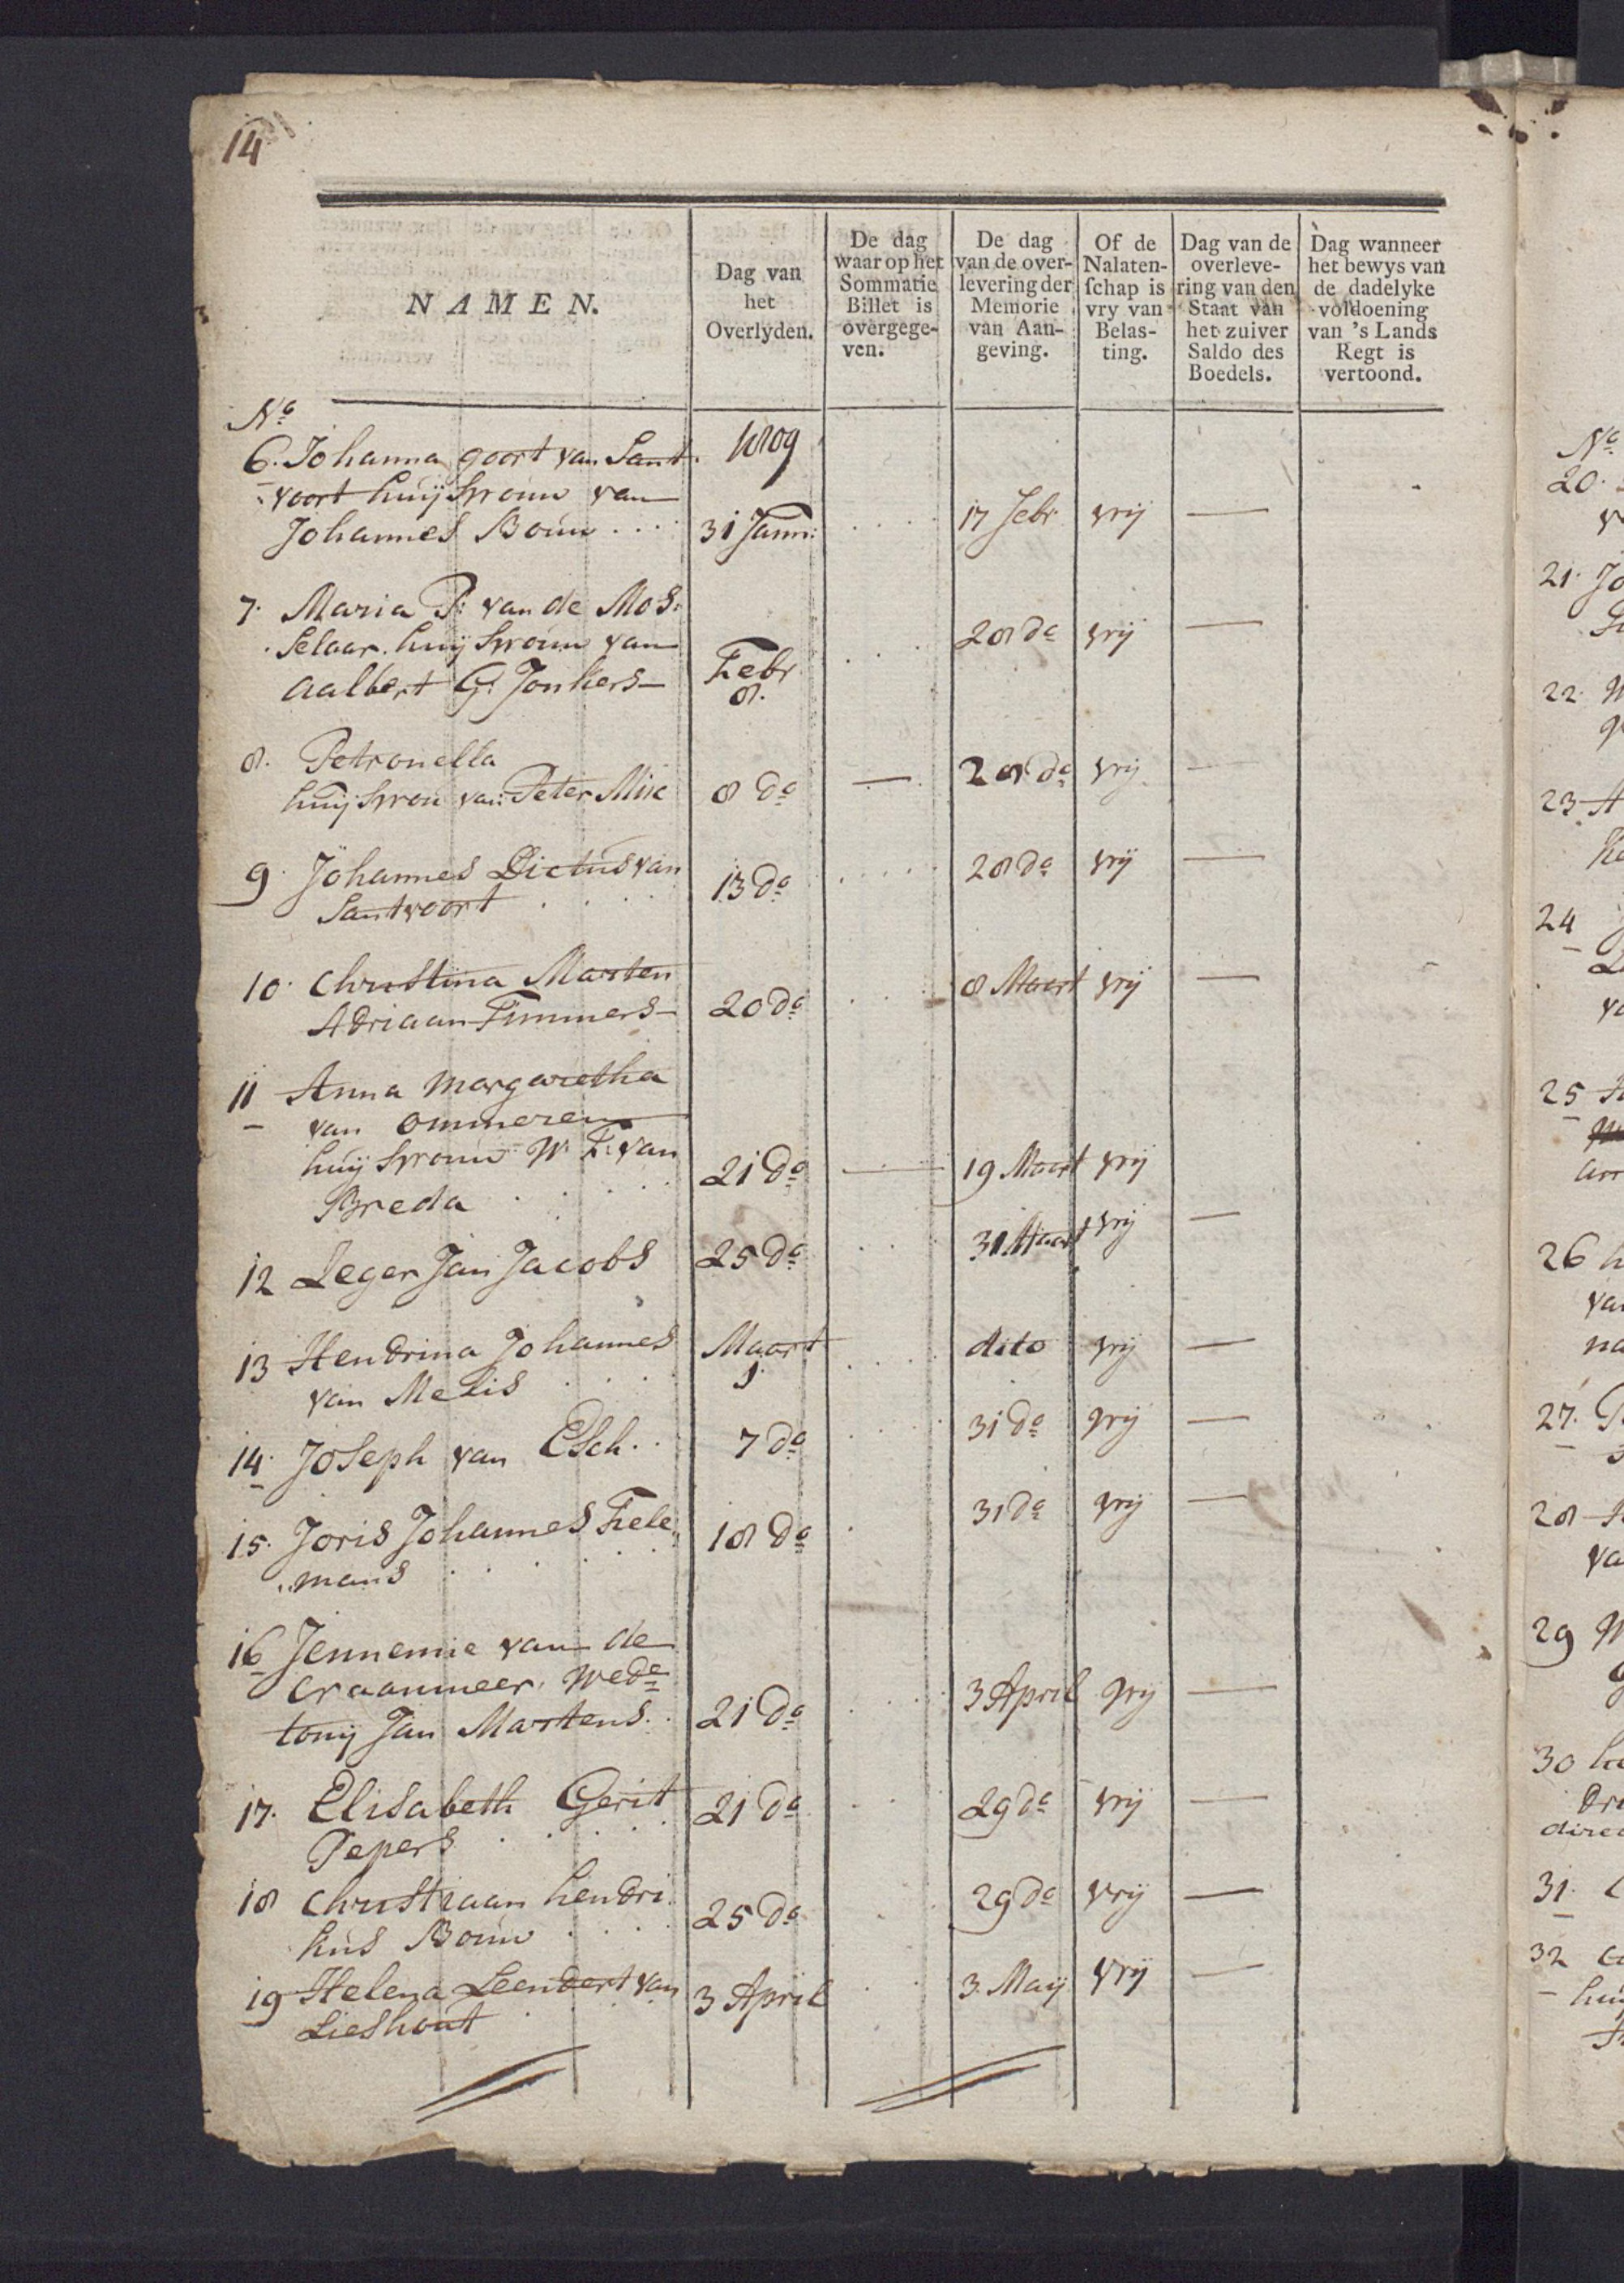 14
NAMEN.
Dag van
het
Overlyden.
De dag
waar op het
Sommatie
Billet is
overgege-
ven.
De dag
van de over-
levering der
Memorie
van Aan-
geving.
Of de
Nalaten-
schap is
vry van
Belas-
ting.
Dag van de
overleve-
ring van den
Staat van
het zuiver
Saldo des
Boedels.
Dag wanneer
het bewys van
de dadelyke
voldoening
van 's Lands
Regt is
vertoond.
No
6. Johanna goort van Sant 1809
voort huijsvrouw van
Johannes Bouw .... 31 Jann: .... 17 Febr vrij —
7. Maria P: van de Mos:
selaar huijsvrouw van 28 do vrij —
aalbert G: Jonkers — Febr
8.
8. Petronella
huijsvrou van Peter Mie 8 do — 28 do vrij —
9. Johannes Dictus van 13 do ..... 28 do vrij —
Santvoort ....
10. Christina Marten
Adriaan Timmers — 20 do .... 8 Maart vrij —
11 Anna Margaretha
van Ommeren
huijsvrouw W: F: van
Breda ..... 21 do — 19 Maart vrij
12 Leger Jan Jacobs 25 do ... 31 Maart vrij —
13 Hendrina Johannes Maart .... dito vrij —
van Melis .... 1.
14. Joseph van Esch .. 7 do .... 31 do vrij —
15. Joris Johannes Tiele 18 do . 31 do vrij —
mans .....
16 Jennemie van de
Craanmeer, Wede
tony Jan Martens .. 21 do .... 3 April vrij —
17. Elisabeth Gerit 21 do ... 29 do vrij —
Pepers .....
18 Christiaan hendri
kus Bouw .... 25 do 29 do vrij —
19 Helena Leendert van 3 April . 3 Maij vrij —
Lieshout
No
20.
21. Jo
22.
23
24
25
26
27.
28
va
29
30
31.
32